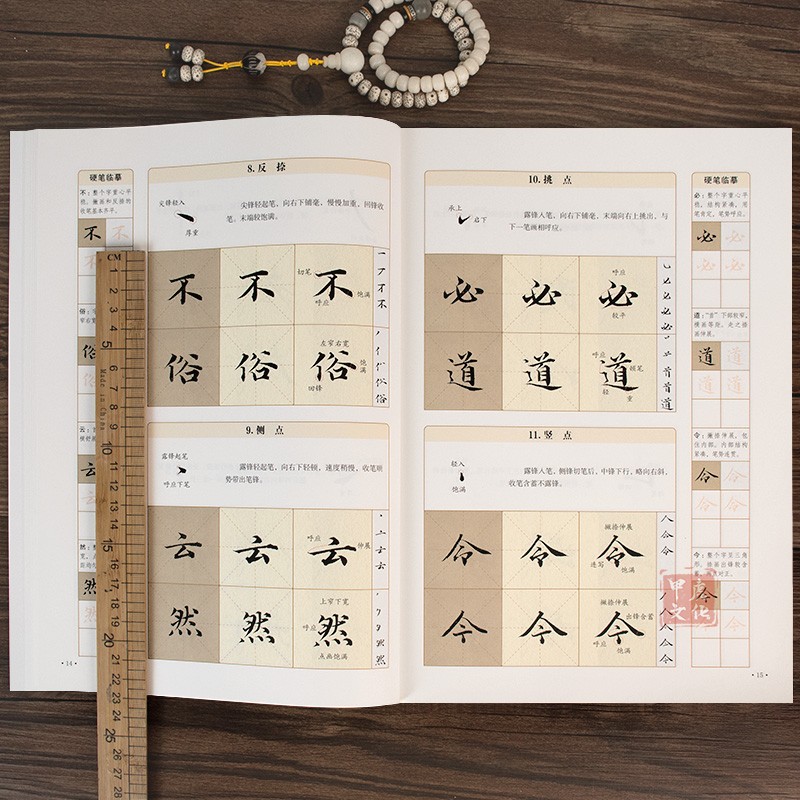 硬笔临摹
不：整个字重心平
收笔基本齐平。
不 不
俗
云
然
8.反 捺
尖锋轻入
厚重
尖锋轻起笔，向右下铺毫，慢慢加重，回锋收
笔。末端较饱满。
不 不 不
切笔
呼应
饱满
俗 俗 俗
左窄右宽
饱满
回锋
9.侧 点
露锋起笔
呼应下笔
露锋轻起笔，向右下轻顿，速度稍慢，收笔顺
势带出笔锋。
云 云 云
呼应
伸展
然 然 然
上窄下宽
呼应
点画饱满
·14·
10.挑 点
承上
启下
露锋入笔，向右下铺毫，末端向右上挑出，与
下一笔画相呼应。
必 必 必
呼应
较平
道 道 道
呼应
顿笔
轻
重
11.竖 点
轻入
饱满
露锋入笔，侧锋切笔后，中锋下行，略向右斜，
收笔含蓄不露锋。
令 令 令
撇捺伸展
连写
饱满
今 今 今
撇捺伸展
出锋含蓄
呼应
饱满
硬笔临摹
必：整个字重心平
稳，结构紧凑，用
笔肯定，笔势呼应。
必 必
必 必
道："首"下部较窄，
横画等距，走之捺
画伸展。
道 道
道 道
令：撇捺伸展，包
住内部。内部结构
紧凑，笔势连贯。
令 令
令 令
今：整个字呈三角
今
·15·
甲虎
文化
CM
1
2
3
4
5
6
7
8
9
10
11
12
13
14
15
16
17
18
19
20
21
22
23
24
25
26
27
28
Made in China